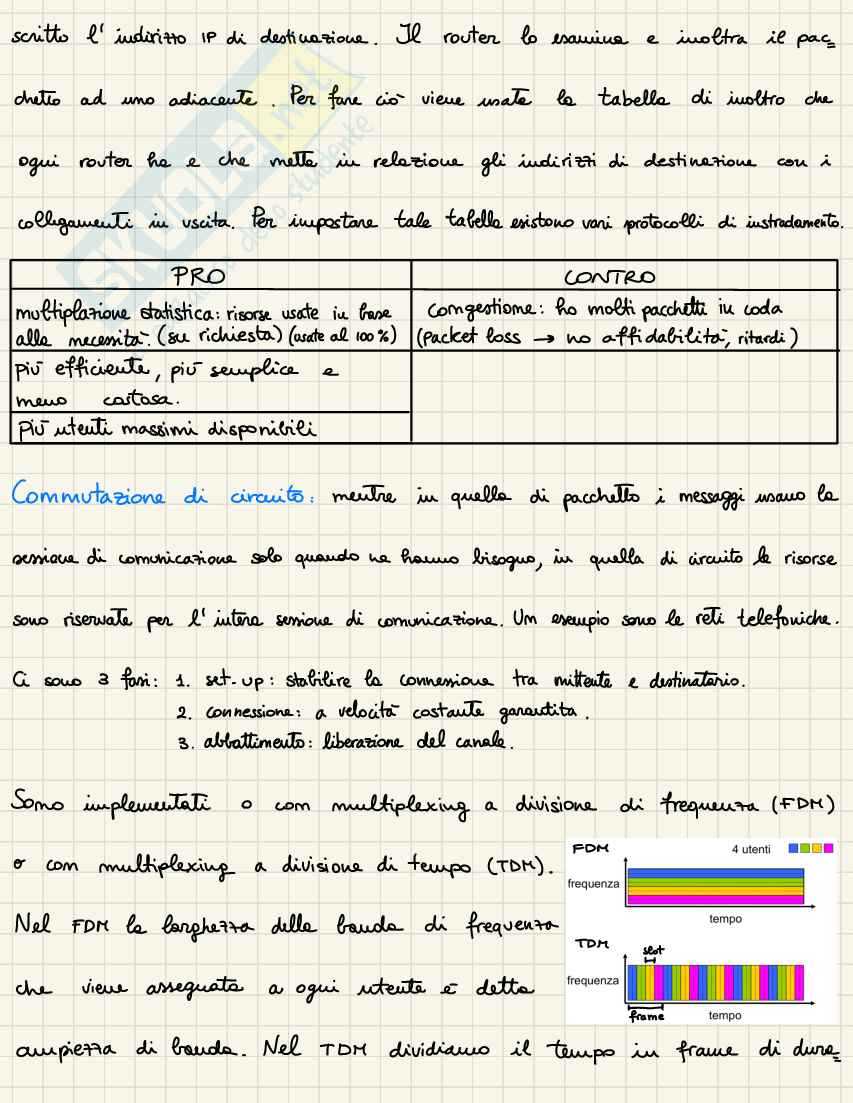 scritto l'indirizzo IP di destinazione. Il router lo esamina e inoltra il pac=
chetto ad uno adiacente. Per fare ciò viene usata la tabella di inoltro che
ogni router ha e che mette in relazione gli indirizzi di destinazione con i
collegamenti in uscita. Per impostare tale tabella esistono vari protocolli di instradamento.
PRO
CONTRO
multiplazione statistica: risorse usate in base
alla necessità. (su richiesta) (usate al 100%)
congestione: ho molti pacchetti in coda
(packet loss → no affidabilità, ritardi)
più efficiente, più semplice e
meno costosa.
più utenti massimi disponibili
Commutazione di circuito: mentre in quella di pacchetto i messaggi usano la
sessione di comunicazione solo quando ne hanno bisogno, in quella di circuito le risorse
sono riservate per l'intera sessione di comunicazione. Un esempio sono le reti telefoniche.
Ci sono 3 fasi: 1. set-up: stabilire la connessione tra mittente e destinatario.
2. connessione: a velocità costante garantita.
3. abbattimento: liberazione del canale.
Sono implementati o con multiplexing a divisione di frequenza (FDM)
o con multiplexing a divisione di tempo (TDM).
FDM
4 utenti
frequenza
tempo
Nel FDM la larghezza della banda di frequenza
TDM
slot
frequenza
frame
tempo
che viene assegnata a ogni utente è detta
ampiezza di banda. Nel TDM dividiamo il tempo in frame di dura=
SKUOLA.net
dello studente